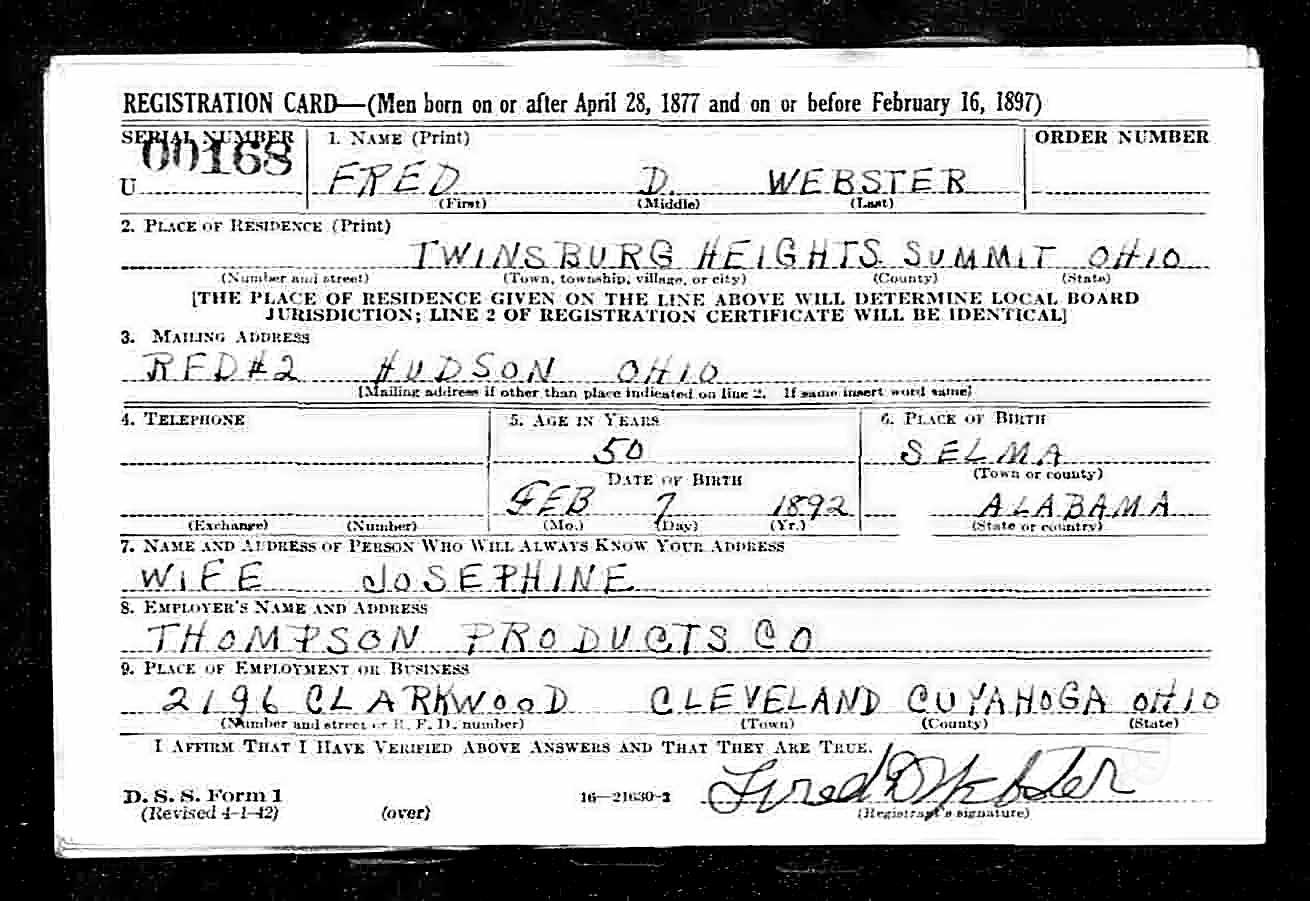 REGISTRATION CARD—(Men born on or after April 28, 1877 and on or before February 16, 1897)
SERIAL NUMBER
1. NAME (Print)
ORDER NUMBER
00168
U
FRED D. WEBSTER
(First) (Middle) (Last)
2. PLACE OF RESIDENCE (Print)
TWINSBURG HEIGHTS SUMMIT OHIO
(Number and street) (Town, township, village, or city) (County) (State)
[THE PLACE OF RESIDENCE GIVEN ON THE LINE ABOVE WILL DETERMINE LOCAL BOARD
JURISDICTION; LINE 2 OF REGISTRATION CERTIFICATE WILL BE IDENTICAL]
3. MAILING ADDRESS
RFD#2 HUDSON OHIO
[Mailing address if other than place indicated on line 2. If same insert word same]
4. TELEPHONE
5. AGE IN YEARS
6. PLACE OF BIRTH
50
SELMA
(Town or county)
DATE OF BIRTH
FEB 7 1892
ALABAMA
(Exchange) (Number)
(Mo.) (Day) (Yr.)
(State or country)
7. NAME AND ADDRESS OF PERSON WHO WILL ALWAYS KNOW YOUR ADDRESS
WIFE JOSEPHINE
8. EMPLOYER'S NAME AND ADDRESS
THOMPSON PRODUCTS CO
9. PLACE OF EMPLOYMENT OR BUSINESS
2196 CLARKWOOD CLEVELAND CUYAHOGA OHIO
(Number and street or R. F. D. number) (Town) (County) (State)
I AFFIRM THAT I HAVE VERIFIED ABOVE ANSWERS AND THAT THEY ARE TRUE.
Fred D Webster
D. S. S. Form 1
(Revised 4-1-42)
(over)
16—21630-2
(Registrant's signature)